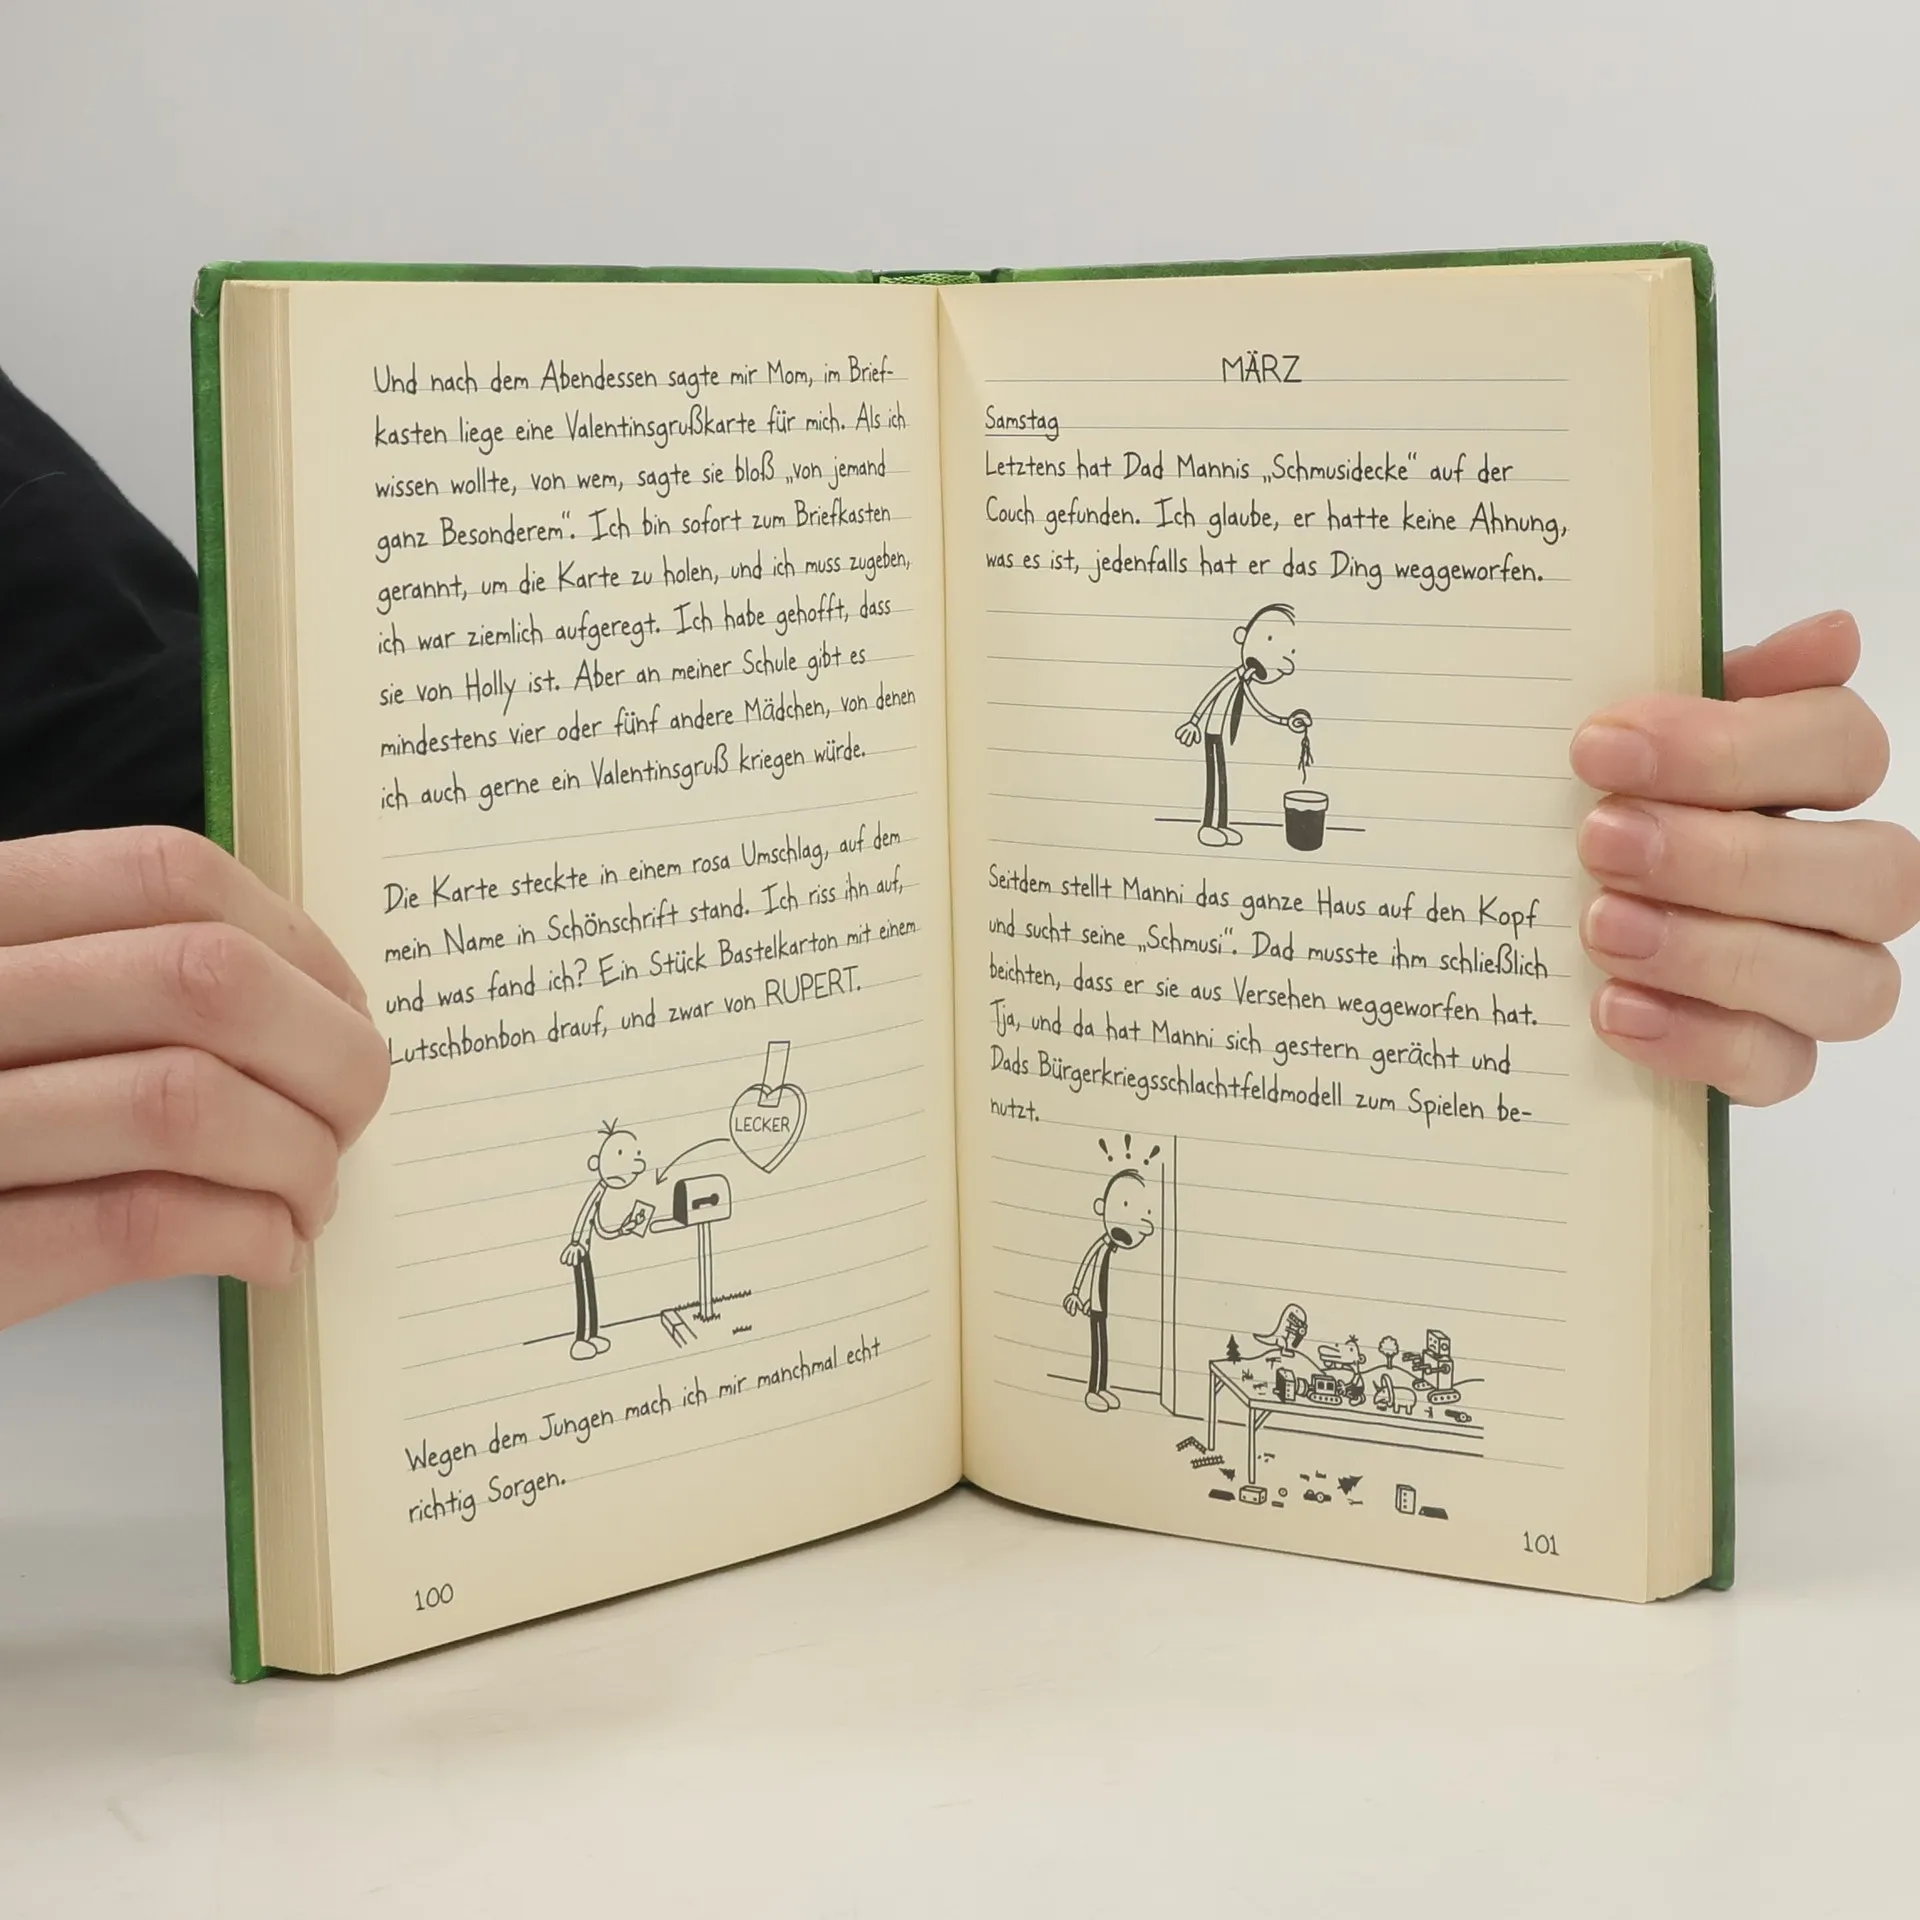 Und nach dem Abendessen sagte mir Mom, im Brief-
kasten liege eine Valentinsgrußkarte für mich. Als ich
wissen wollte, von wem, sagte sie bloß „von jemand
ganz Besonderem“. Ich bin sofort zum Briefkasten
gerannt, um die Karte zu holen, und ich muss zugeben,
ich war ziemlich aufgeregt. Ich habe gehofft, dass
sie von Holly ist. Aber an meiner Schule gibt es
mindestens vier oder fünf andere Mädchen, von denen
ich auch gerne ein Valentinsgruß kriegen würde.
Die Karte steckte in einem rosa Umschlag, auf dem
mein Name in Schönschrift stand. Ich riss ihn auf,
und was fand ich? Ein Stück Bastelkarton mit einem
Lutschbonbon drauf, und zwar von RUPERT.
LECKER
Wegen dem Jungen mach ich mir manchmal echt
richtig Sorgen.
100
MÄRZ
Samstag
Letztens hat Dad Mannis „Schmusidecke“ auf der
Couch gefunden. Ich glaube, er hatte keine Ahnung,
was es ist, jedenfalls hat er das Ding weggeworfen.
Seitdem stellt Manni das ganze Haus auf den Kopf
und sucht seine „Schmusi“. Dad musste ihm schließlich
beichten, dass er sie aus Versehen weggeworfen hat.
Tja, und da hat Manni sich gestern gerächt und
Dads Bürgerkriegsschlachtfeldmodell zum Spielen be-
nutzt.
! ! !
101